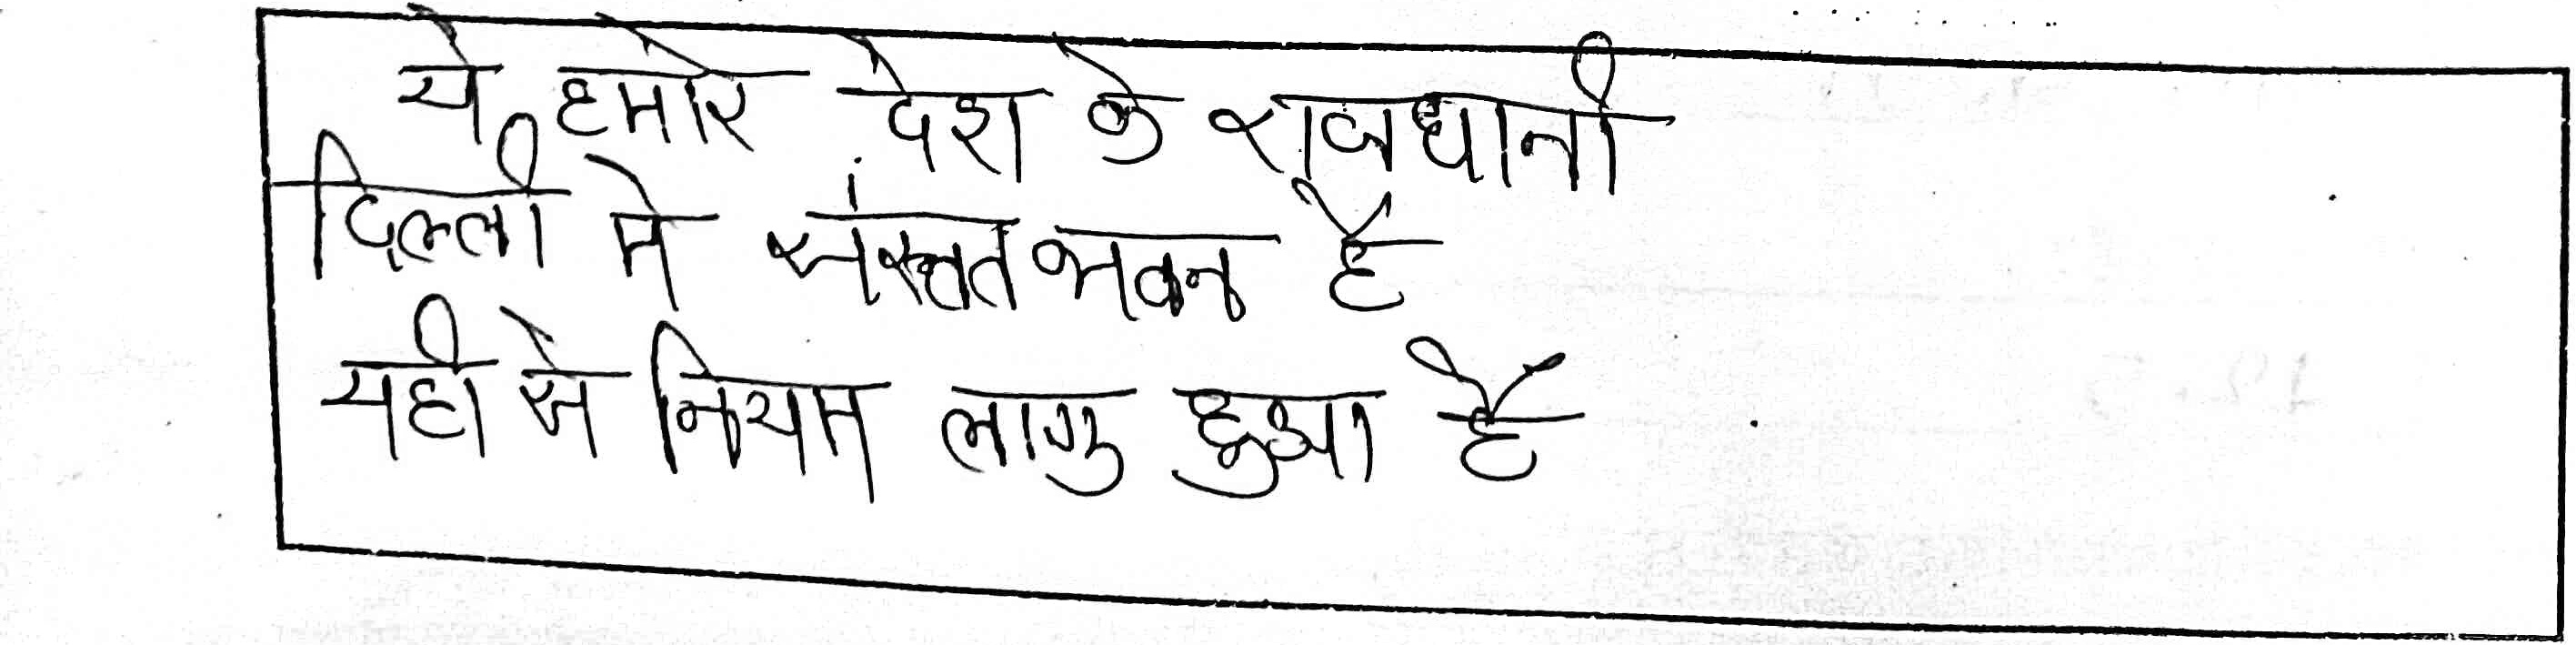 ये हमारे देश के राजधानी
दिल्ली मे संस्त्तत भवन है
यही से नियम लागु हुआ है